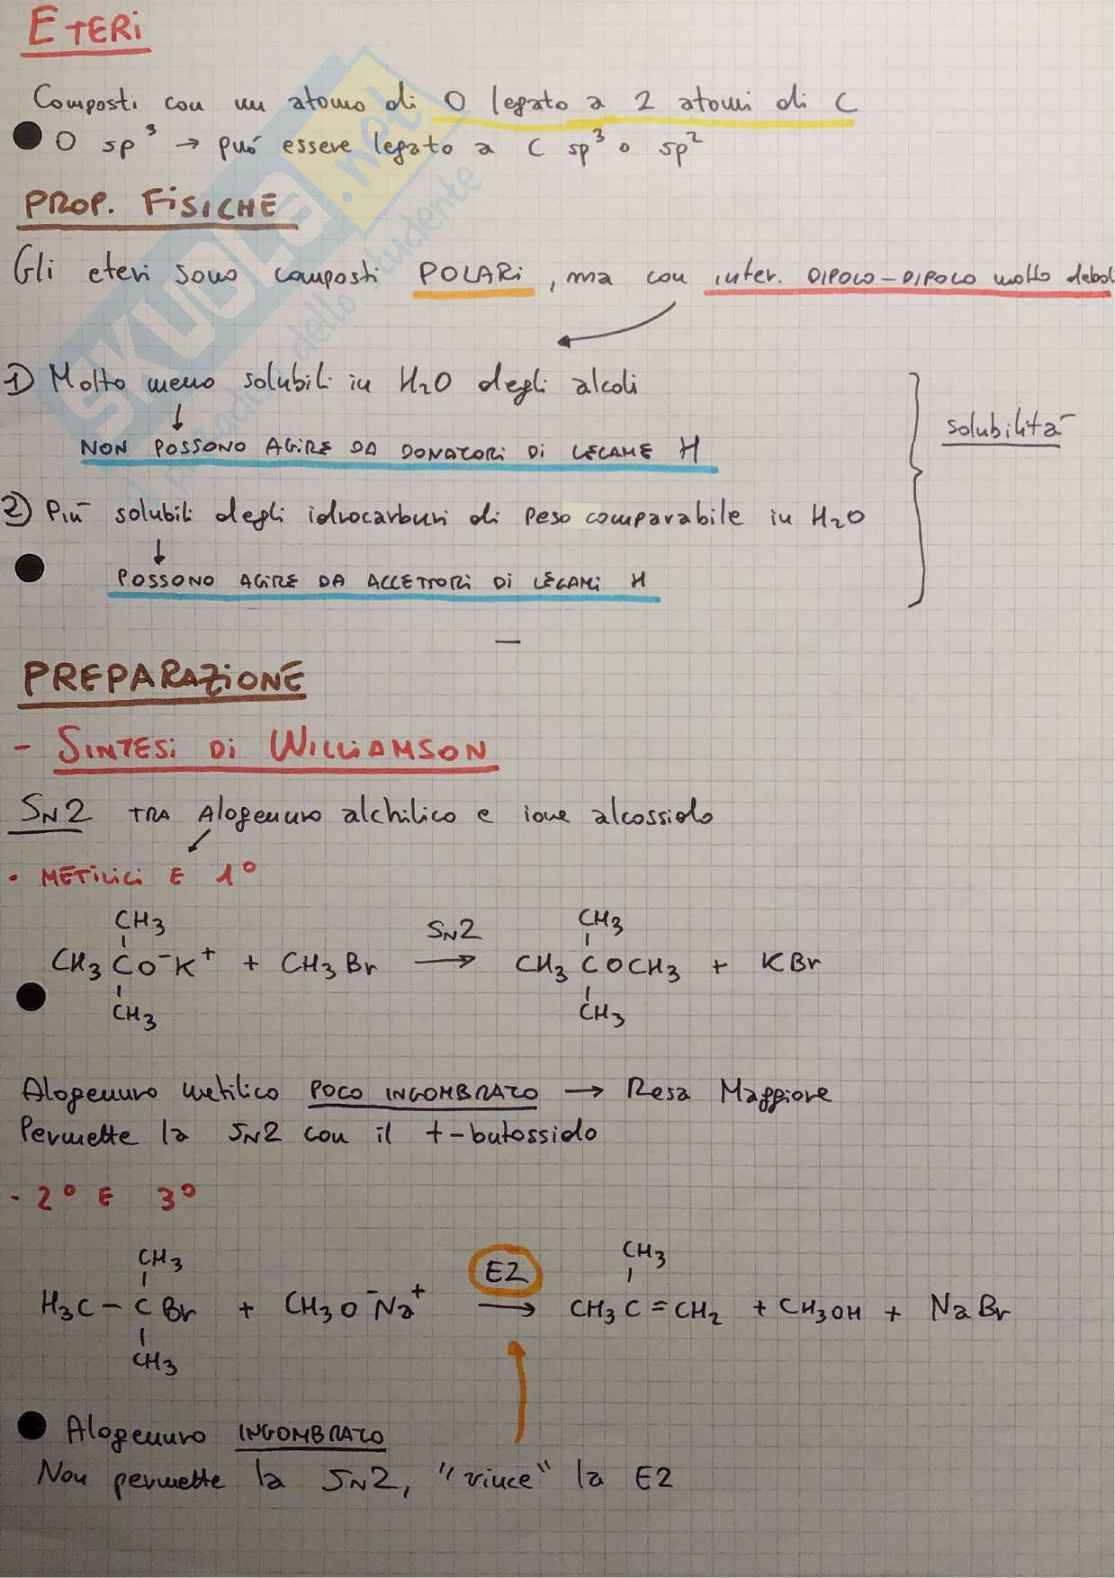 ETERI
Composti con un atomo di O legato a 2 atomi di C
O sp³ → puó essere legato a C sp³ o sp²
PROP. FISICHE
Gli eteri sono composti POLARI, ma con inter. DIPOLO-DIPOLO molto debol
1) Molto meno solubili in H₂O degli alcoli
NON POSSONO AGIRE DA DONATORI DI LEGAME H
solubilitá
2) Piú solubili degli idrocarburi di peso comparabile in H₂O
POSSONO AGIRE DA ACCETTORI DI LEGAMI H
—
PREPARAZIONE
- SINTESI DI WILLIAMSON
SN2 TRA Alogenuro alchilico e ione alcossido
• METILICI E 1°
CH₃ CH₃
CH₃ C O⁻K⁺ + CH₃Br SN2 → CH₃ C OCH₃ + KBr
CH₃ CH₃
Alogenuro metilico POCO INGOMBRATO → Resa Maggiore
Permette la SN2 con il t-butossido
• 2° E 3°
CH₃ CH₃
H₃C – C Br + CH₃O⁻Na⁺ E2 → CH₃C = CH₂ + CH₃OH + NaBr
CH₃
Alogenuro INGOMBRATO
Non permette la SN2, "vince" la E2
SKUOLA.net